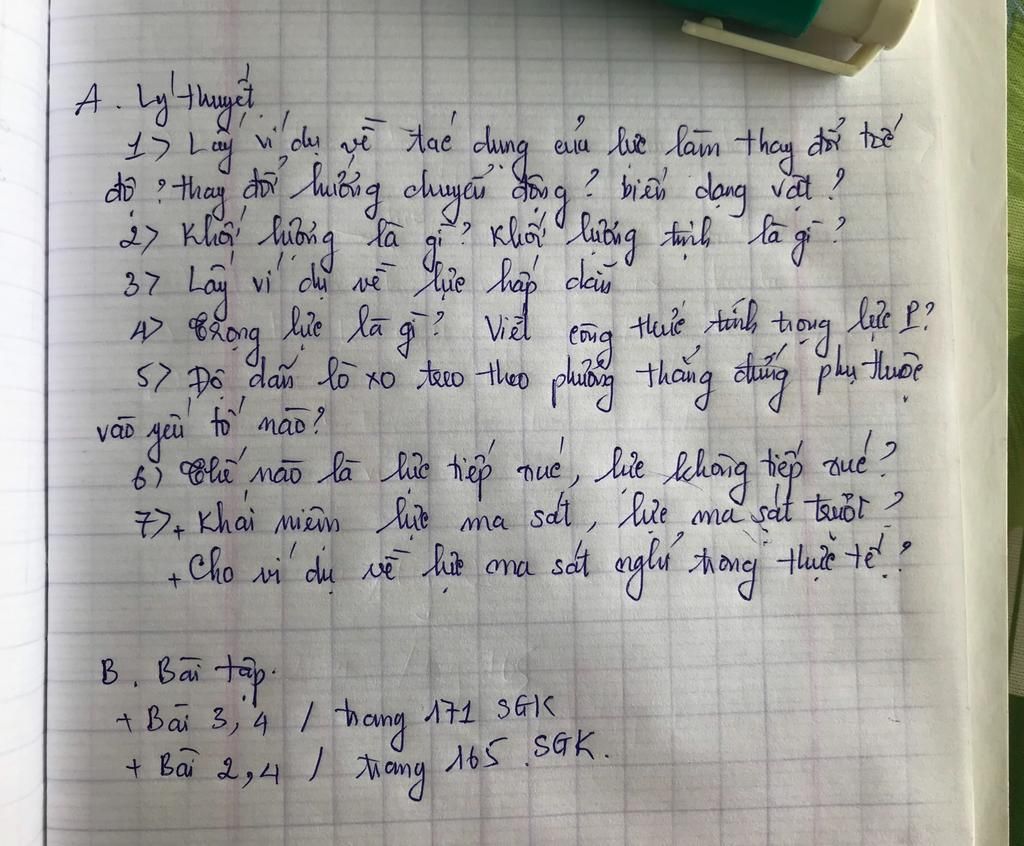 A. Lý thuyết
1> Lấy ví dụ về tác dụng của lực làm thay đổi tốc
độ? thay đổi hướng chuyển động? biến dạng vật?
2> Khối lượng là gì? Khối lượng tịnh là gì?
3> Lấy ví dụ về lực hấp dẫn
4> Trọng lực là gì? Viết công thức tính trọng lực P?
5> Độ dãn lò xo treo theo phương thẳng đứng phụ thuộc
vào yếu tố nào?
6) Thế nào là lực tiếp xúc, lực không tiếp xúc?
7>+ Khái niệm lực ma sát, lực ma sát trượt?
+ Cho ví dụ về lực ma sát nghỉ trong thực tế?
B. Bài tập.
+ Bài 3, 4 / trang 171 SGK
+ Bài 2,4 / trang 165 SGK.